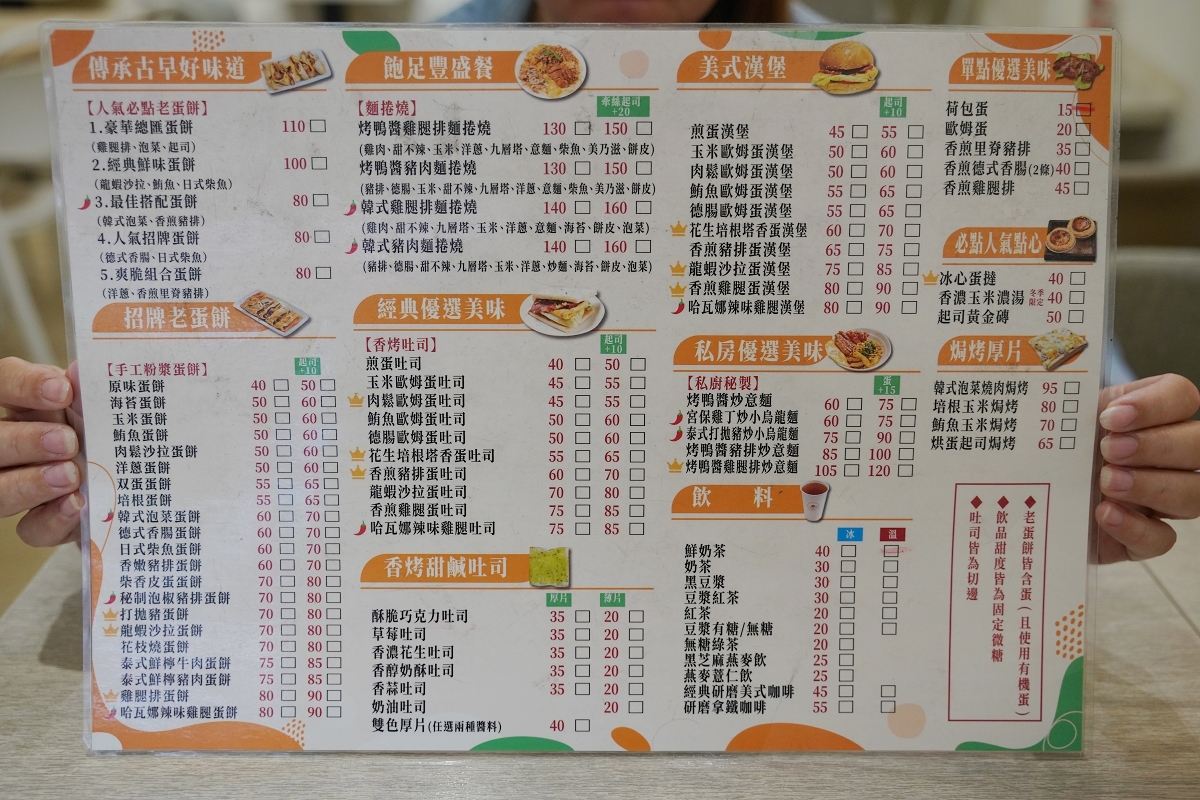 傳承古早好味道
【人氣必點老蛋餅】
1.豪華總匯蛋餅 110
(雞腿排、泡菜、起司)
2.經典鮮味蛋餅 100
(龍蝦沙拉、鮪魚、日式柴魚)
3.最佳搭配蛋餅 80
(韓式泡菜、香煎豬排)
4.人氣招牌蛋餅 80
(德式香腸、日式柴魚)
5.爽脆組合蛋餅 80
(洋蔥、香煎里脊豬排)
招牌老蛋餅
起司
【手工粉漿蛋餅】 +10
原味蛋餅 40 50
海苔蛋餅 50 60
玉米蛋餅 50 60
鮪魚蛋餅 50 60
肉鬆沙拉蛋餅 50 60
洋蔥蛋餅 50 60
双蛋蛋餅 55 65
培根蛋餅 55 65
韓式泡菜蛋餅 60 70
德式香腸蛋餅 60 70
日式柴魚蛋餅 60 70
香嫩豬排蛋餅 60 70
柴香皮蛋蛋餅 70 80
秘制泡椒豬排蛋餅 70 80
打拋豬蛋餅 70 80
龍蝦沙拉蛋餅 70 80
花枝燒蛋餅 70 80
泰式鮮檸牛肉蛋餅 75 85
泰式鮮檸豬肉蛋餅 75 85
雞腿排蛋餅 80 90
哈瓦娜辣味雞腿蛋餅 80 90
飽足豐盛餐
牽絲起司
【麵捲燒】 +20
烤鴨醬雞腿排麵捲燒 130 150
(雞肉、甜不辣、玉米、洋蔥、九層塔、意麵、柴魚、美乃滋、餅皮)
烤鴨醬豬肉麵捲燒 130 150
(豬排、德腸、玉米、甜不辣、九層塔、洋蔥、意麵、柴魚、美乃滋、餅皮)
韓式雞腿排麵捲燒 140 160
(雞肉、甜不辣、九層塔、玉米、洋蔥、意麵、海苔、餅皮、泡菜)
韓式豬肉麵捲燒 140 160
(豬排、德腸、甜不辣、九層塔、玉米、洋蔥、炒麵、海苔、餅皮、泡菜)
經典優選美味
起司
【香烤吐司】 +10
煎蛋吐司 40 50
玉米歐姆蛋吐司 45 55
肉鬆歐姆蛋吐司 45 55
鮪魚歐姆蛋吐司 50 60
德腸歐姆蛋吐司 50 60
花生培根塔香蛋吐司 55 65
香煎豬排蛋吐司 60 70
龍蝦沙拉蛋吐司 70 80
香煎雞腿蛋吐司 75 85
哈瓦娜辣味雞腿吐司 75 85
香烤甜鹹吐司
厚片 薄片
酥脆巧克力吐司 35 20
草莓吐司 35 20
香濃花生吐司 35 20
香醇奶酥吐司 35 20
香蒜吐司 35 20
奶油吐司 20
雙色厚片(任選兩種醬料) 40
美式漢堡
起司
+10
煎蛋漢堡 45 55
玉米歐姆蛋漢堡 50 60
肉鬆歐姆蛋漢堡 50 60
鮪魚歐姆蛋漢堡 55 65
德腸歐姆蛋漢堡 55 65
花生培根塔香蛋漢堡 60 70
香煎豬排蛋漢堡 65 75
龍蝦沙拉蛋漢堡 75 85
香煎雞腿蛋漢堡 80 90
哈瓦娜辣味雞腿漢堡 80 90
私房優選美味
蛋
【私廚秘製】 +15
烤鴨醬炒意麵 60 75
宮保雞丁炒小烏龍麵 60 75
泰式打拋豬炒小烏龍麵 75 90
烤鴨醬豬排炒意麵 85 100
烤鴨醬雞腿排炒意麵 105 120
飲 料
冰 溫
鮮奶茶 40
奶茶 30
黑豆漿 30
豆漿紅茶 30
紅茶 20
豆漿有糖/無糖 20
無糖綠茶 20
黑芝麻燕麥飲 25
燕麥薏仁飲 25
經典研磨美式咖啡 45
研磨拿鐵咖啡 55
單點優選美味
荷包蛋 15
歐姆蛋 20
香煎里脊豬排 35
香煎德式香腸(2條) 40
香煎雞腿排 45
必點人氣點心
冰心蛋撻 40
香濃玉米濃湯 冬季限定 40
起司黃金磚 50
焗烤厚片
韓式泡菜燒肉焗烤 95
培根玉米焗烤 80
鮪魚玉米焗烤 70
烘蛋起司焗烤 65
◆老蛋餅皆含蛋(且使用有機蛋)
◆飲品甜度皆為固定微糖
◆吐司皆為切邊